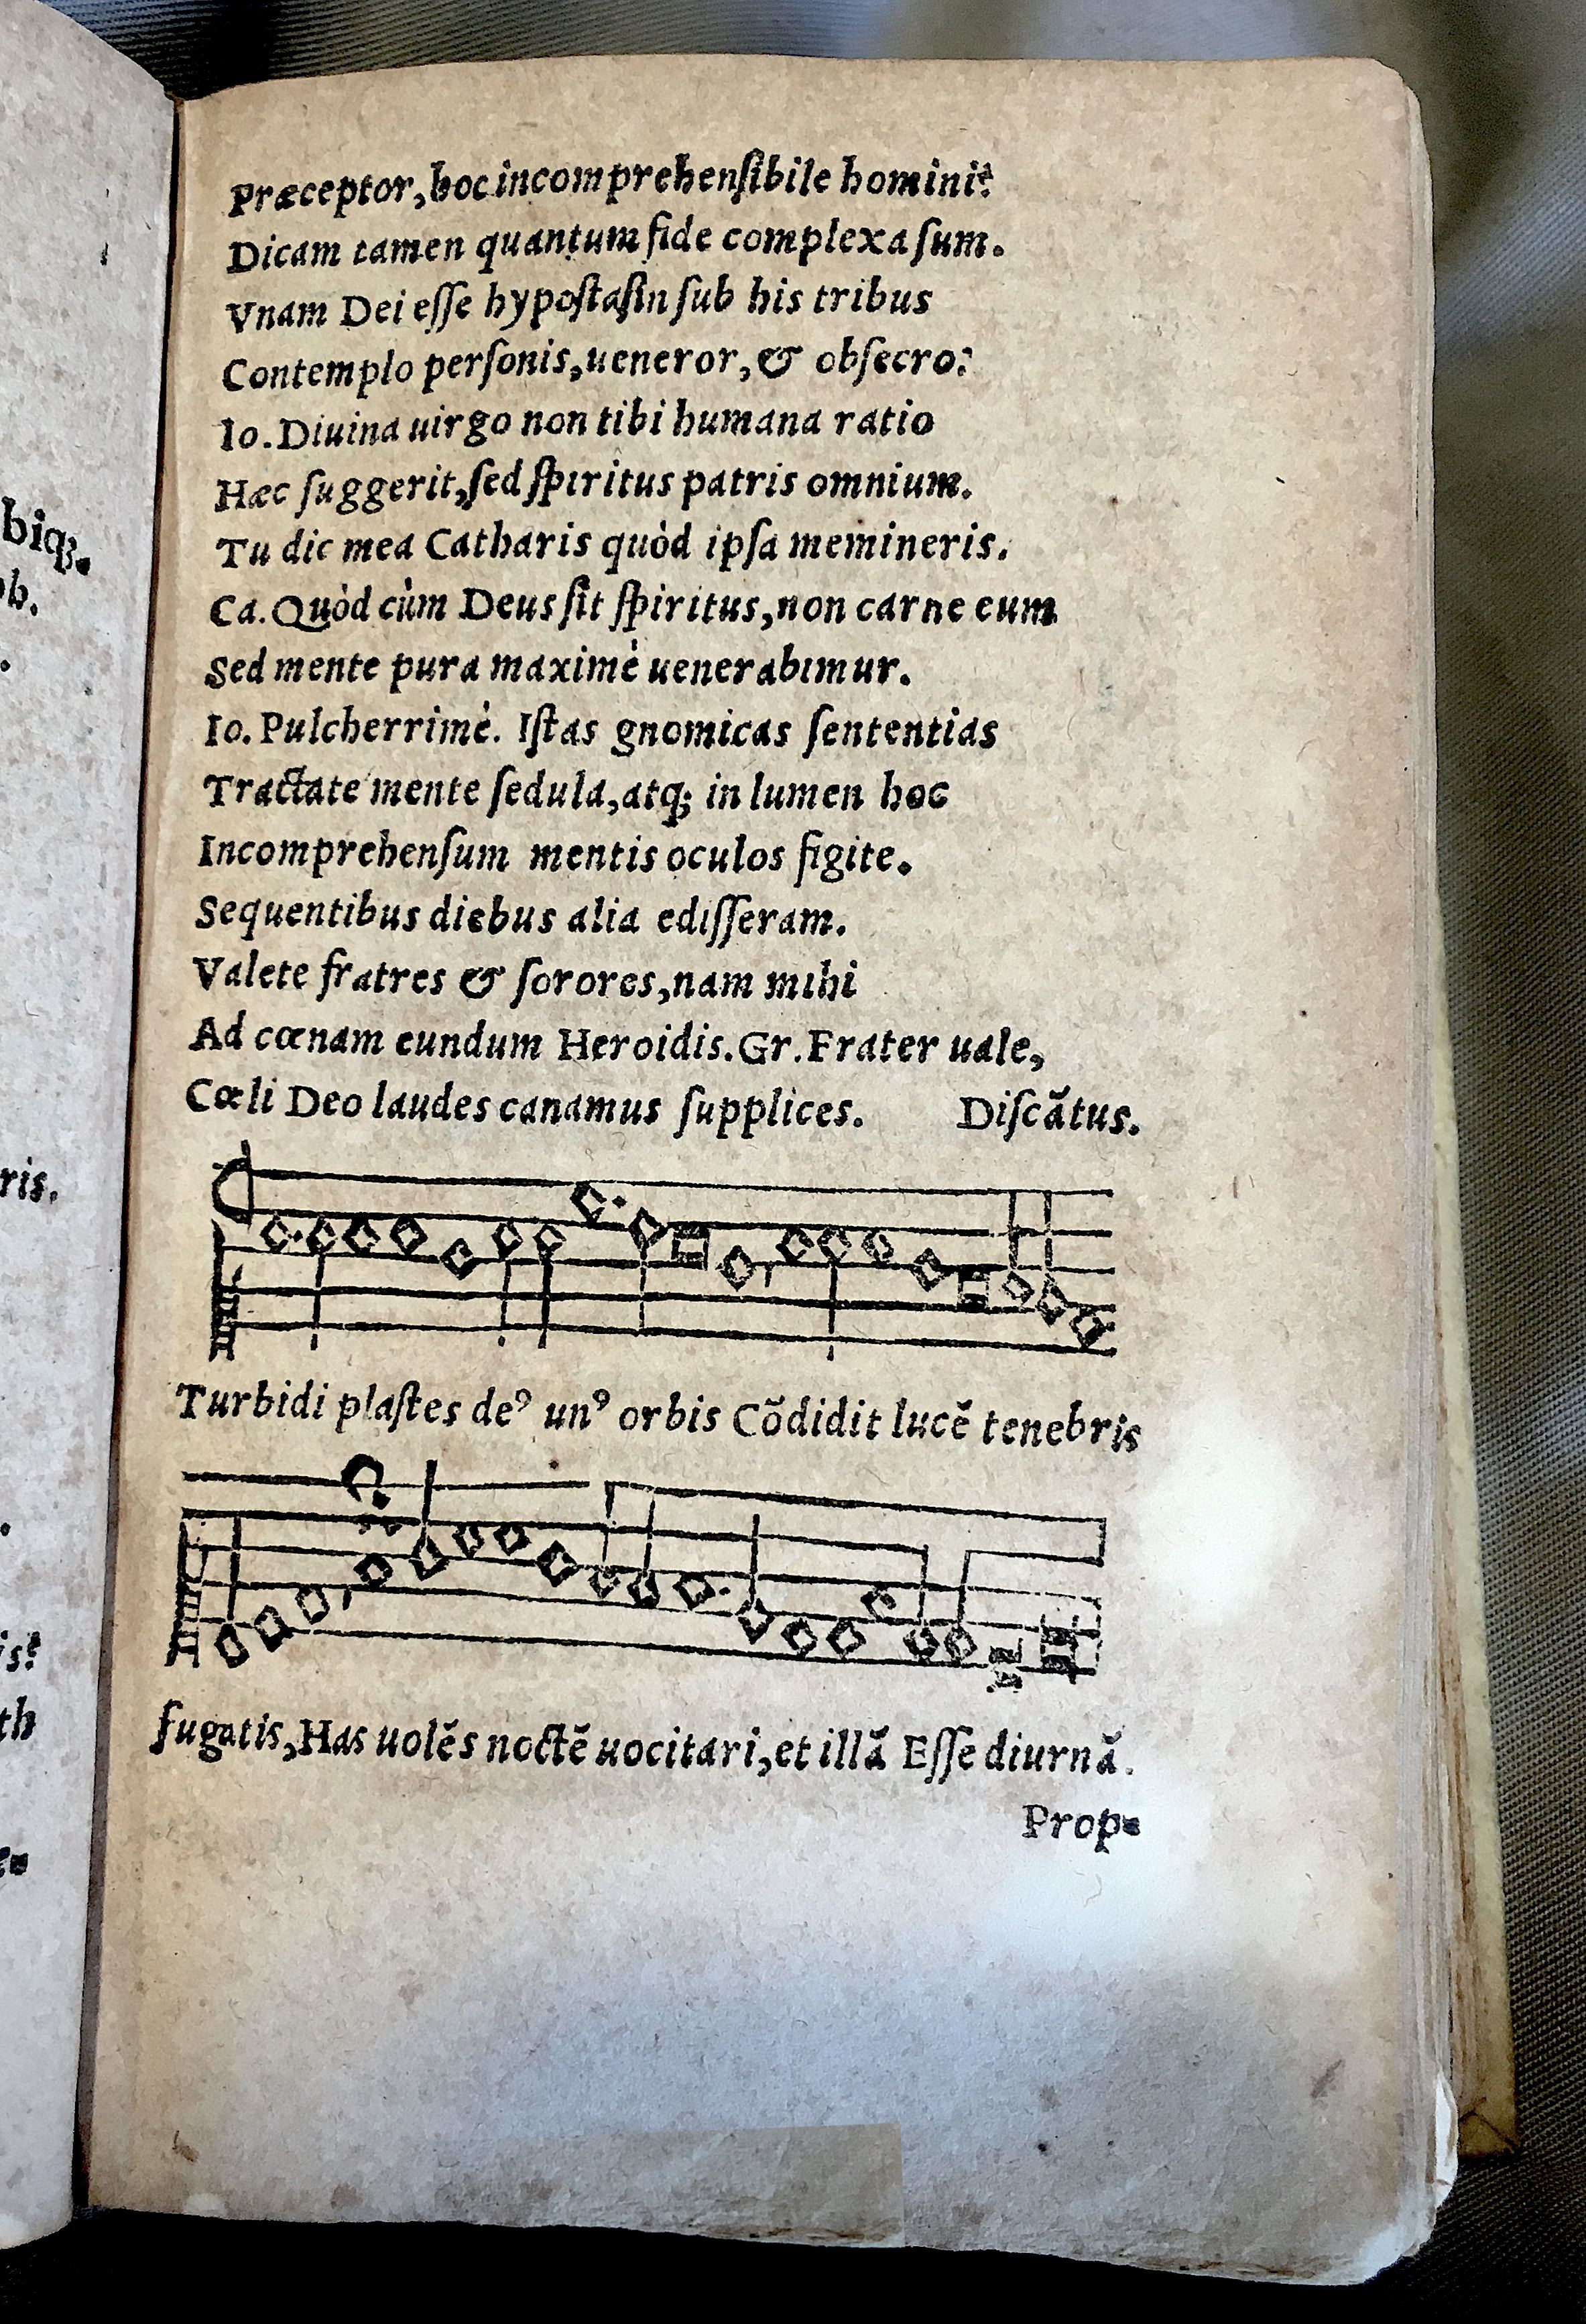 Præceptor, hoc incomprehenſibile homini?
Dicam tamen quantum fide complexa ſum.
Vnam Dei eſſe hypoſtaſin ſub his tribus
Contemplo perſonis, ueneror, & obſecro:
Io. Diuina uirgo non tibi humana ratio
Hæc ſuggerit, ſed ſpiritus patris omnium.
Tu dic mea Catharis quòd ipſa memineris.
Ca. Quòd cùm Deus ſit ſpiritus, non carne eum
Sed mente pura maximè uenerabimur.
Io. Pulcherrimè. Iſtas gnomicas ſententias
Tractate mente ſedula, atq; in lumen hoc
Incomprehenſum mentis oculos figite.
Sequentibus diebus alia ediſſeram.
Valete fratres & ſorores, nam mihi
Ad cœnam eundum Heroidis. Gr. Frater uale,
Cœli Deo laudes canamus ſupplices. Diſcãtus.
Turbidi plaſtes deꝰ unꝰ orbis Cõdidit lucẽ tenebris
fugatis, Has uolẽs noctẽ uocitari, et illã Eſſe diurnã.
Prop-
biq;.
ris.